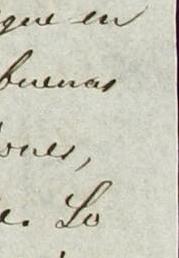 gue en
buenas
ones,
e. Lo